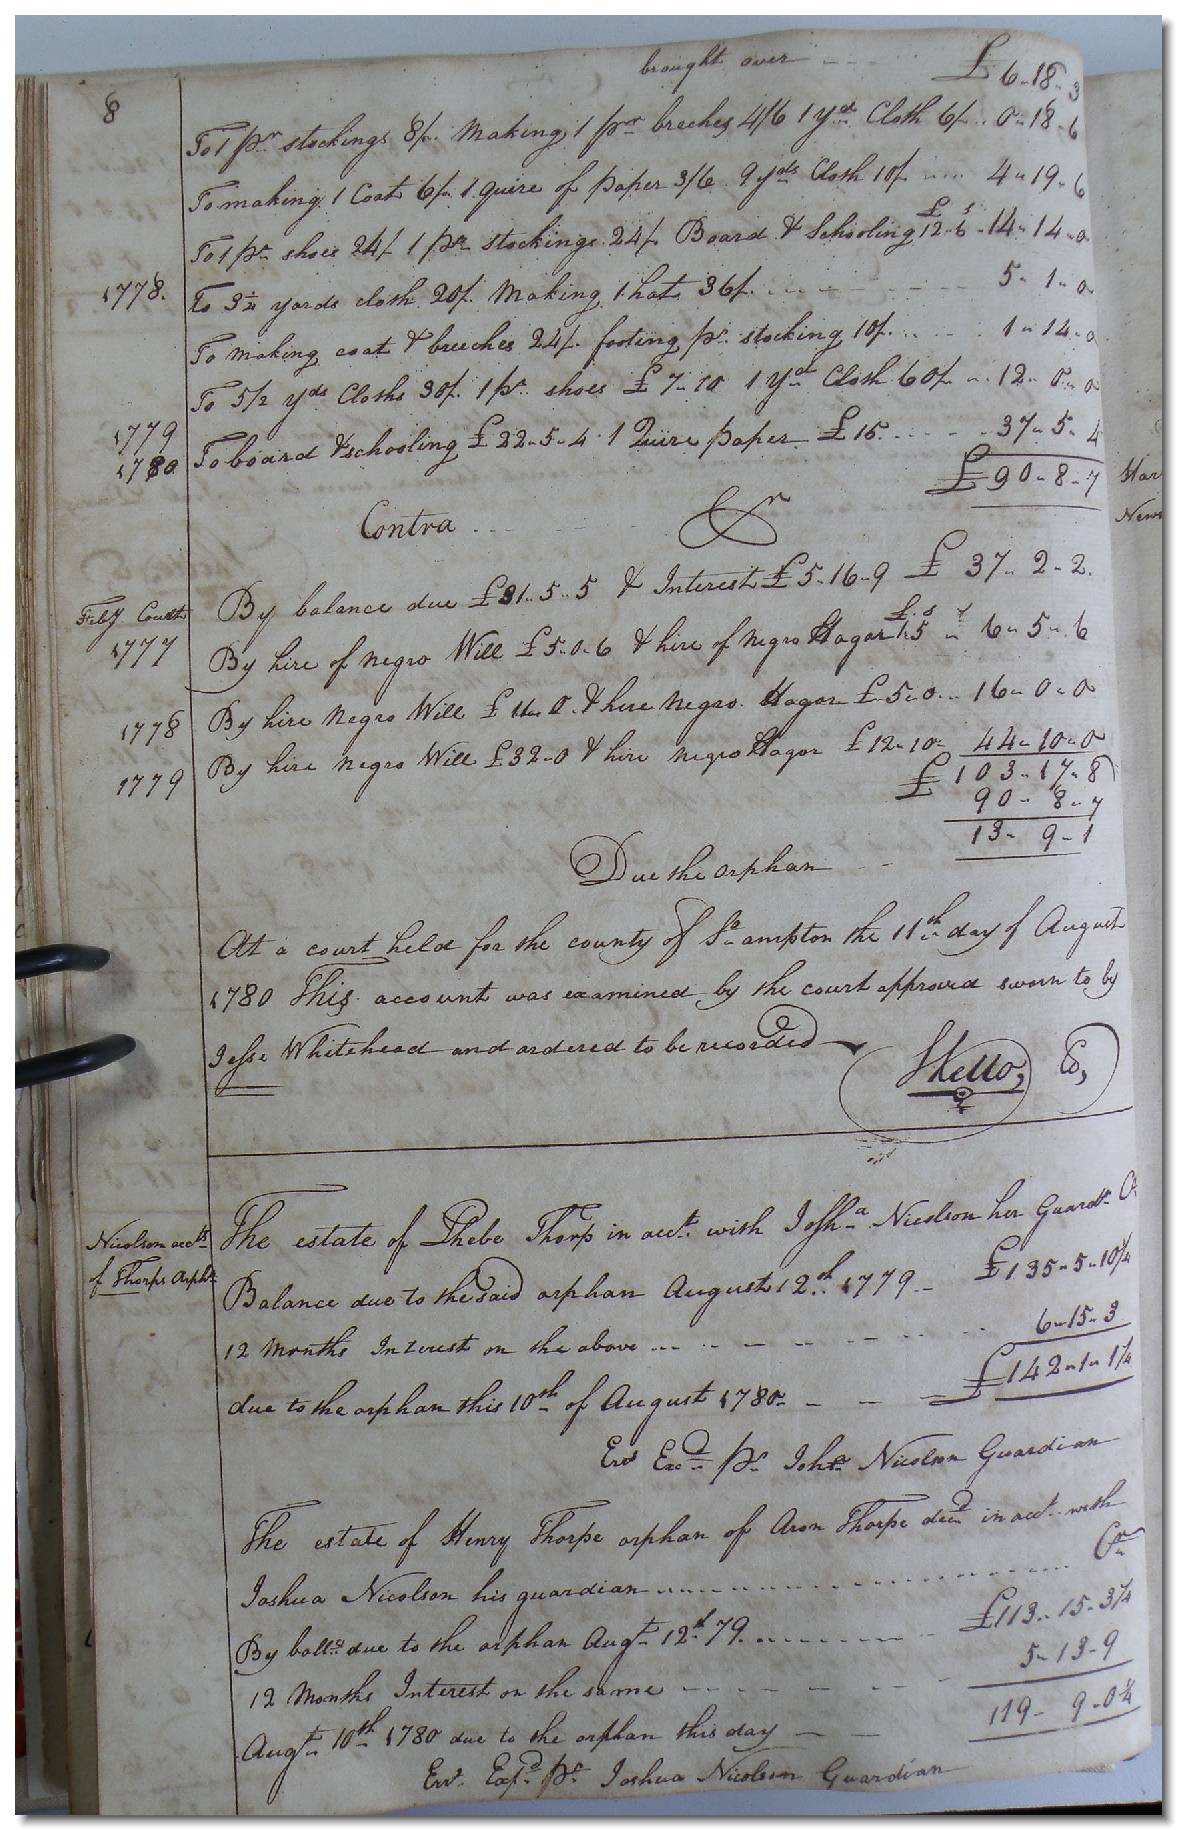 8
brought over £ 6-18-3
To 1 pr stockings 8/. Making 1 pr breches 4/6 1 yd Cloth 6/. 0-18-6
To making 1 Coat 6/. 1 quire of paper 3/6 9 yds Cloth 10/. 4-19-6
To 1 pr shoes 24/ 1 pr stockings 24/. Board & Schooling £12-6s 14-14-0
1778. To 3¼ yards cloth 20/. Making 1 hat 36/. 5-1-0
To making coat & breeches 24/. footing pr stocking 10/. 1-14-0
To 5/2 yds Cloths 30/. 1 pr shoes £7-10 1 yd Cloth 60/. 12-0-0
1779
1780 To board & schooling £22-5-4 1 Quire paper £15. 37-5-4
£90-8-7
Har
New
Contra Cr
By balance due £31-5-5 & Interest £5-16-9 £ 37-2-2.
Feby Court
1777 By hire of negro Will £5-0-6 & hire of negro Hagar £1-5s 6-5-6
1778 By hire negro Will £11-0 & hire negro Hagar £5-0 16-0-0
1779 By hire negro Will £32-0 & hire negro Hagar £12-10 44-10-0
£103-17-8
90-8-7
13-9-1
Due the orphan
At a court held for the county of So ampton the 11th day of August
1780 This account was examined by the court approved sworn to by
Jesse Whitehead and ordered to be recorded
Kello, Co,
Nicolson accts
of Thorps Orphs
The estate of Phebe Thorp in acct. with Josha Nicolson her Guardn Cr
Balance due to the said orphan August 12th 1779 £135-5-10¼
12 Months Interest on the above 6-15-3
due to the orphan this 10th of August 1780 £142-1-1¼
Err Exd pr Josha Nicolson Guardian
The estate of Henry Thorpe orphan of Aron Thorpe decd in acct with
Joshua Nicolson his guardian Cr
By balle due to the orphan Augt 12th 79. £113-15-3¼
12 Months Interest on the same 5-13-9
Augt 10th 1780 due to the orphan this day 119-9-0¼
Err. Expd pr Joshua Nicolson Guardian